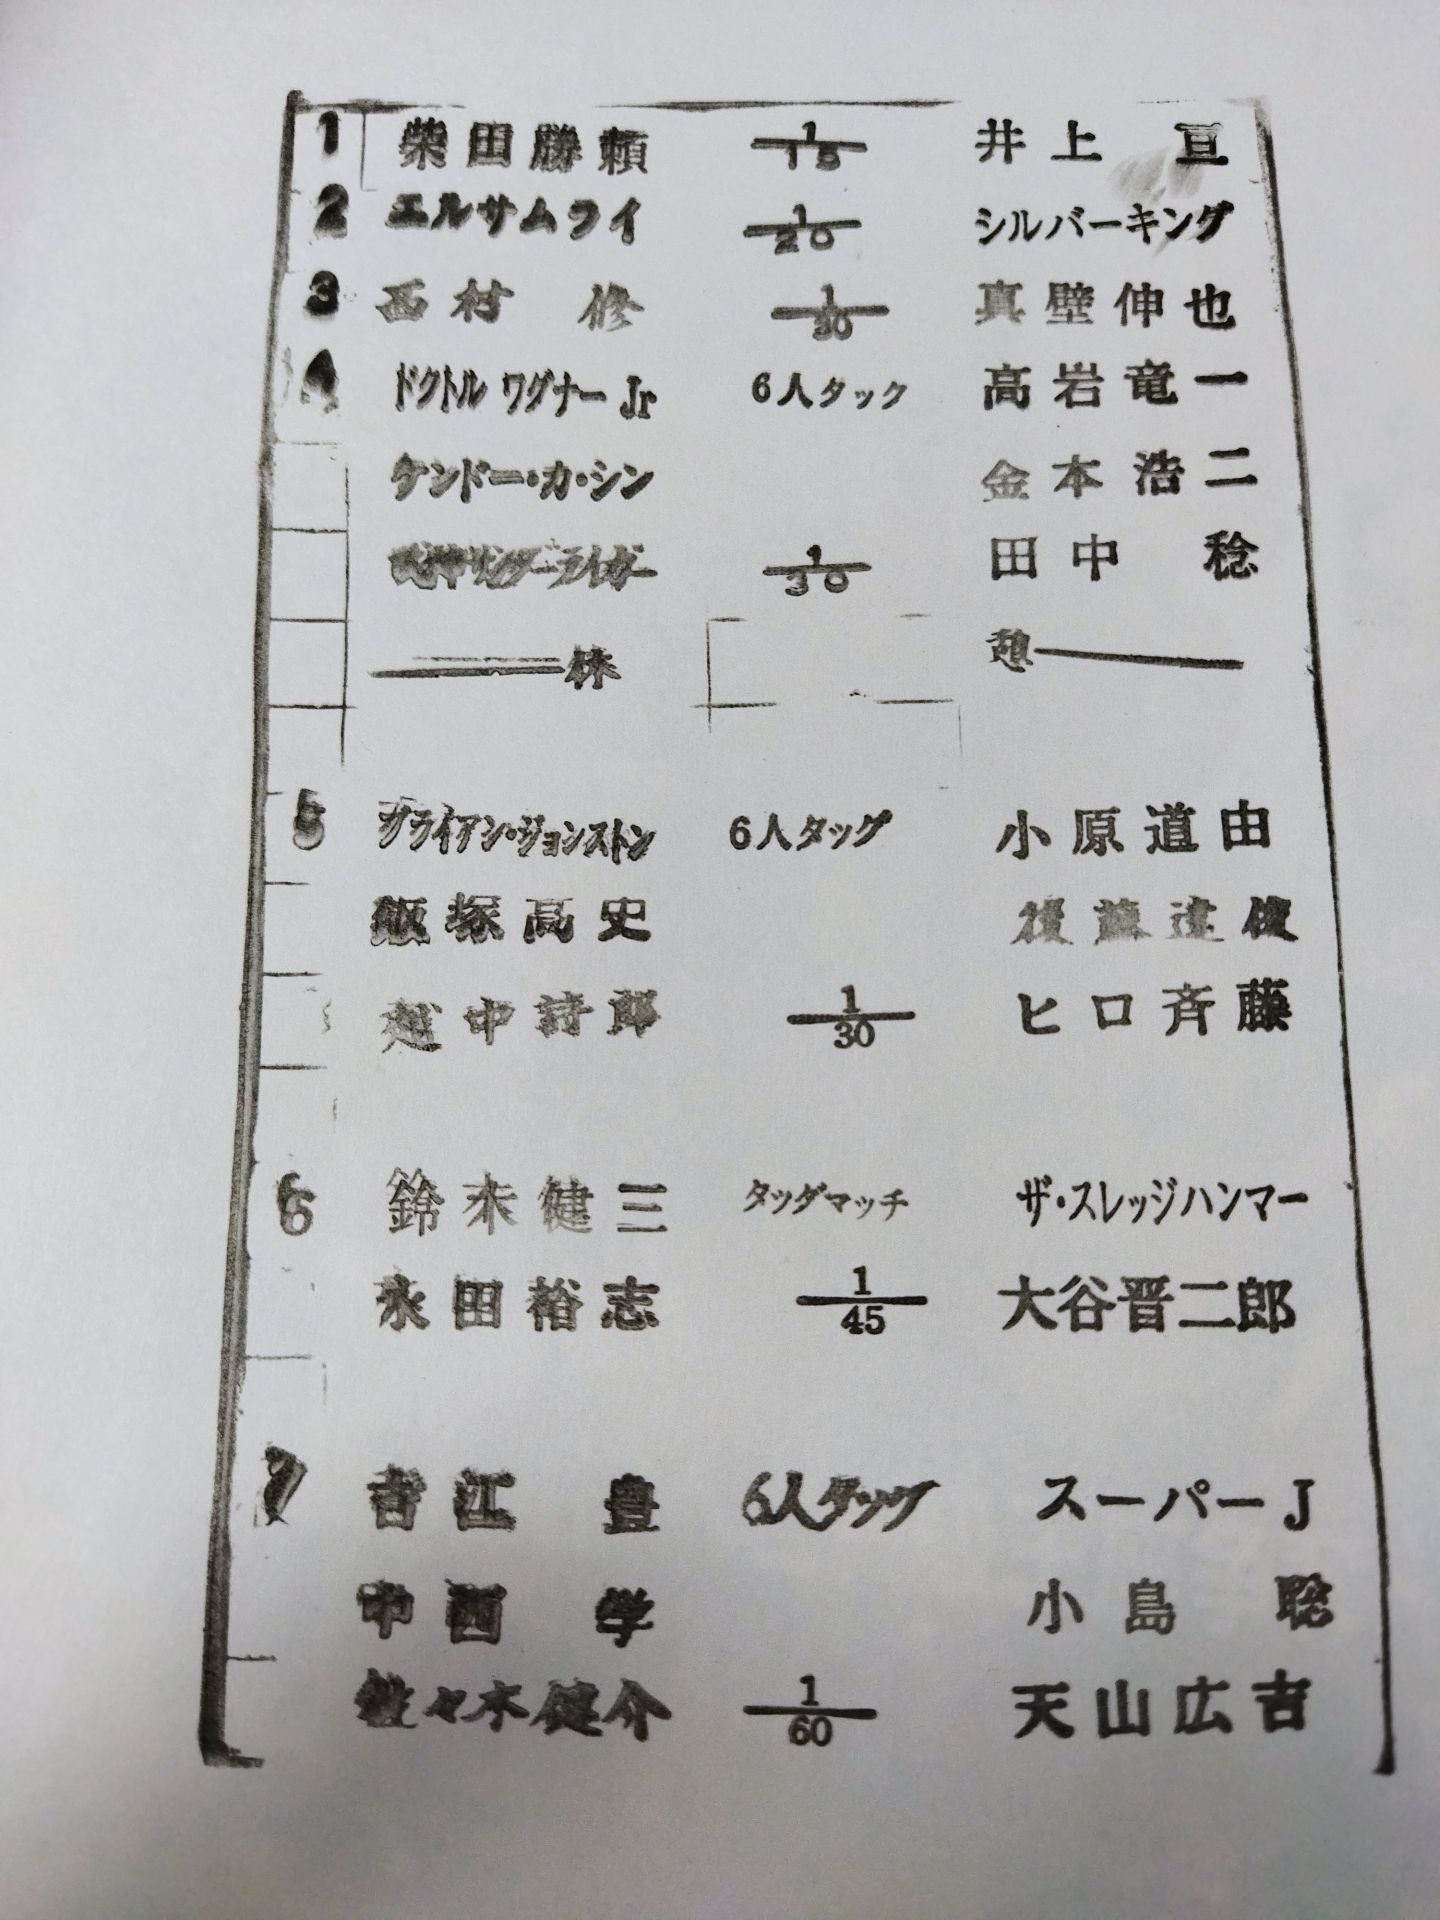 1 柴田勝頼 1/15 井上 亘
2 エルサムライ 1/20 シルバーキング
3 西村 修 1/30 真壁伸也
4 ドクトル ワグナー Jr 6人タック 高岩竜一
ケンドー・カ・シン 金本浩二
獣神サンダーライガー 1/30 田中 稔
休 憩
5 ブライアン・ジョンストン 6人タッグ 小原道由
飯塚高史 後藤達俊
越中詩郎 1/30 ヒロ斉藤
6 鈴木健三 タッグマッチ ザ・スレッジハンマー
永田裕志 1/45 大谷晋二郎
7 吉江 豊 6人タッグ スーパーJ
中西 学 小島 聡
佐々木健介 1/60 天山広吉